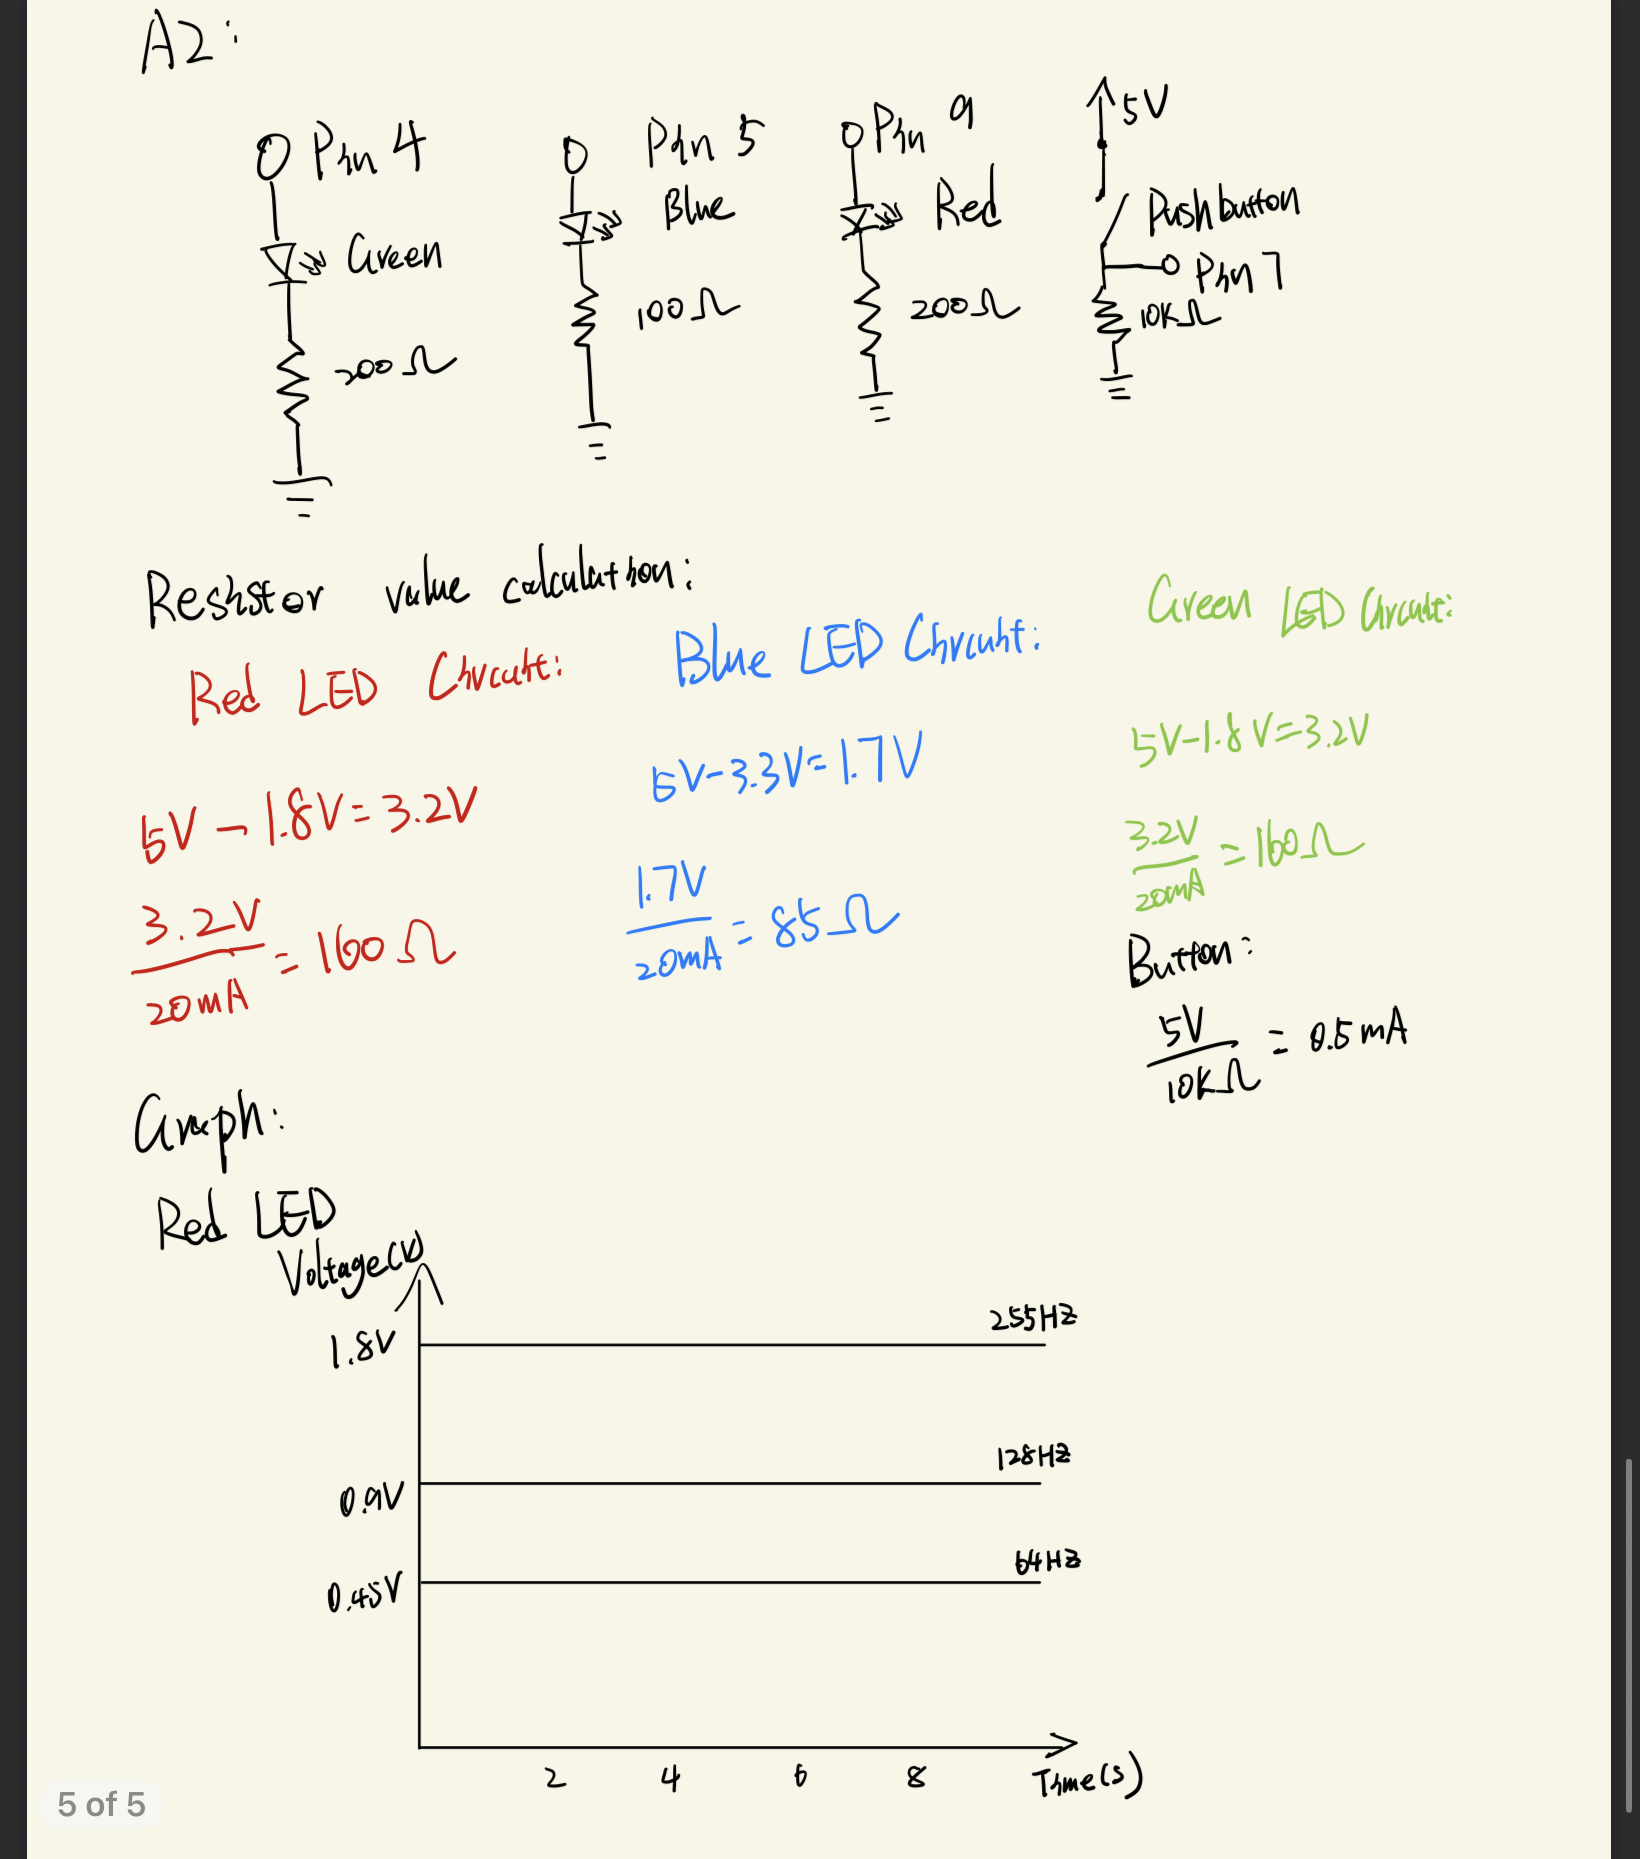 A2:
Pin 4
Green
200Ω
Pin 5
Blue
100Ω
Pin 9
Red
200Ω
5V
Pushbutton
Pin 7
10KΩ
Resistor value calculation:
Red LED Circuit:
5V - 1.8V = 3.2V
3.2V
20mA
= 160Ω
Blue LED Circuit:
5V - 3.3V = 1.7V
1.7V
20mA
= 85Ω
Green LED Circuit:
5V - 1.8V = 3.2V
3.2V
20mA
= 160Ω
Button:
5V
10KΩ
= 0.5mA
Graph:
Red LED
Voltage(V)
1.8V
255HZ
0.9V
128HZ
0.45V
64HZ
2 4 6 8 Time(s)
5 of 5